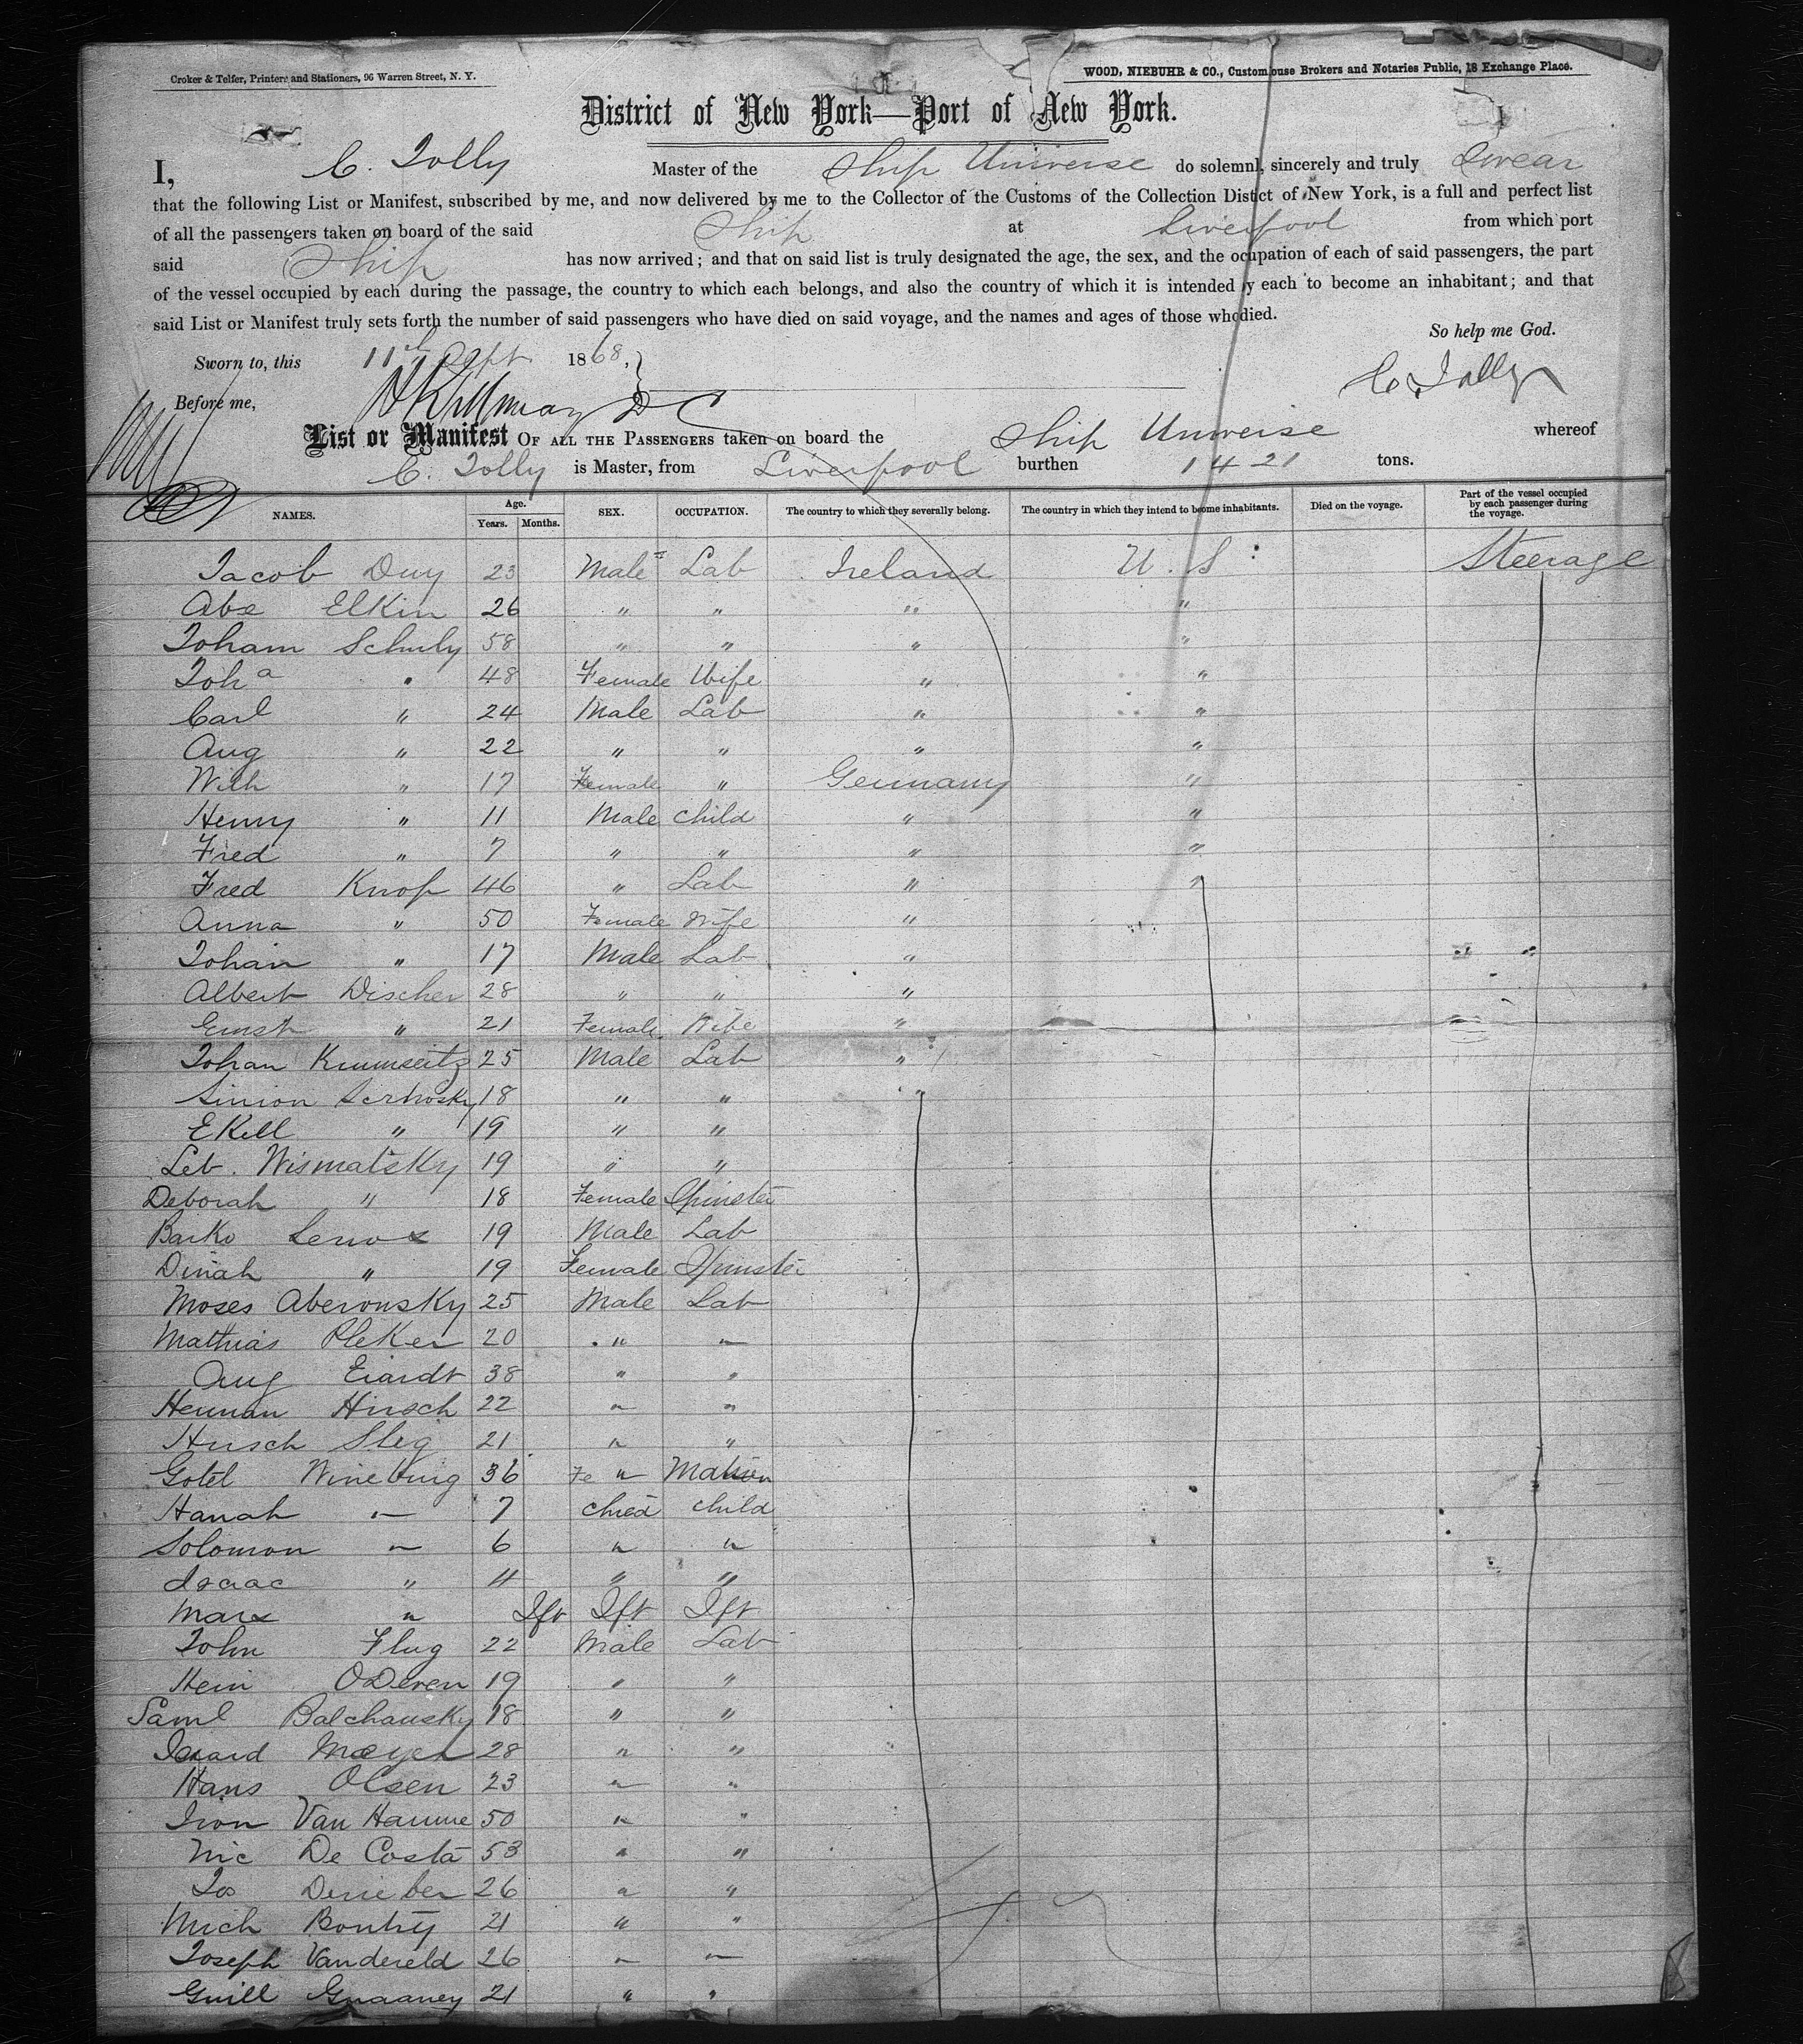 Croker & Telfer, Printers and Stationers, 96 Warren Street, N. Y.
WOOD, NIEBUHR & CO., Custom ouse Brokers and Notaries Public, 18 Exchange Place.
District of New York—Port of New York.
I, C. Jolly Master of the Ship Universe do solemnl, sincerely and truly swear
that the following List or Manifest, subscribed by me, and now delivered by me to the Collector of the Customs of the Collection Distict of New York, is a full and perfect list
of all the passengers taken on board of the said Ship at Liverpool from which port
said Ship has now arrived; and that on said list is truly designated the age, the sex, and the ocupation of each of said passengers, the part
of the vessel occupied by each during the passage, the country to which each belongs, and also the country of which it is intended y each to become an inhabitant; and that
said List or Manifest truly sets forth the number of said passengers who have died on said voyage, and the names and ages of those who died.
So help me God.
Sworn to, this 11th Sept 1868,
C. Jolly
Before me,
List or Manifest OF ALL THE PASSENGERS taken on board the Ship Universe whereof
C. Jolly is Master, from Liverpool burthen 1421 tons.
NAMES. Age. Years. Months. SEX. OCCUPATION. The country to which they severally belong. The country in which they intend to beome inhabitants. Died on the voyage. Part of the vessel occupied by each passenger during the voyage.
Jacob Duy 23 Male Lab Ireland U. S. Steerage
Abe Elkin 26 " " " "
Joham Schuly 58 " " " "
Joha " 48 Female Wife " "
Carl " 24 Male Lab " "
Aug " 22 " " " "
Wilh " 17 Female " Germany "
Henry " 11 Male child " "
Fred " 7 " " " "
Fred Knop 46 " Lab " "
Anna " 50 Female Wife "
Johan " 17 Male Lab "
Albert Discher 28 " " "
Ernst " 21 Female Wife "
Johan 25 Male Lab "
Simon 18 " " "
EKell " 19 " "
Leb. Wismatsky 19 " "
Deborah " 18 Female Spinster
Barko Lenox 19 Male Lab
Dinah " 19 Female Spinster
Moses Aberonsky 25 Male Lab
Mathias Pleker 20 " "
Aug Eiardt 38 " "
Herman Hirsch 22 " "
Hirsch Sleg 21 " "
Gotel Wineburg 36 Fe " Matron
Hanah " 7 child child
Solomon " 6 " "
Isaac " 4 " "
Marx " Ift Ift Ift
John Flug 22 Male Lab
Hein ODeren 19 " "
Saml Balchausky 18 " "
Isaard Meyer 28 " "
Hans Olsen 23 " "
Van Hamme 50 " "
Nic De Costa 53 " "
Jos 26 " "
Mich Bontry 21 " "
Joseph Vandereld 26 " "
Guill Gnaaney 21 " "